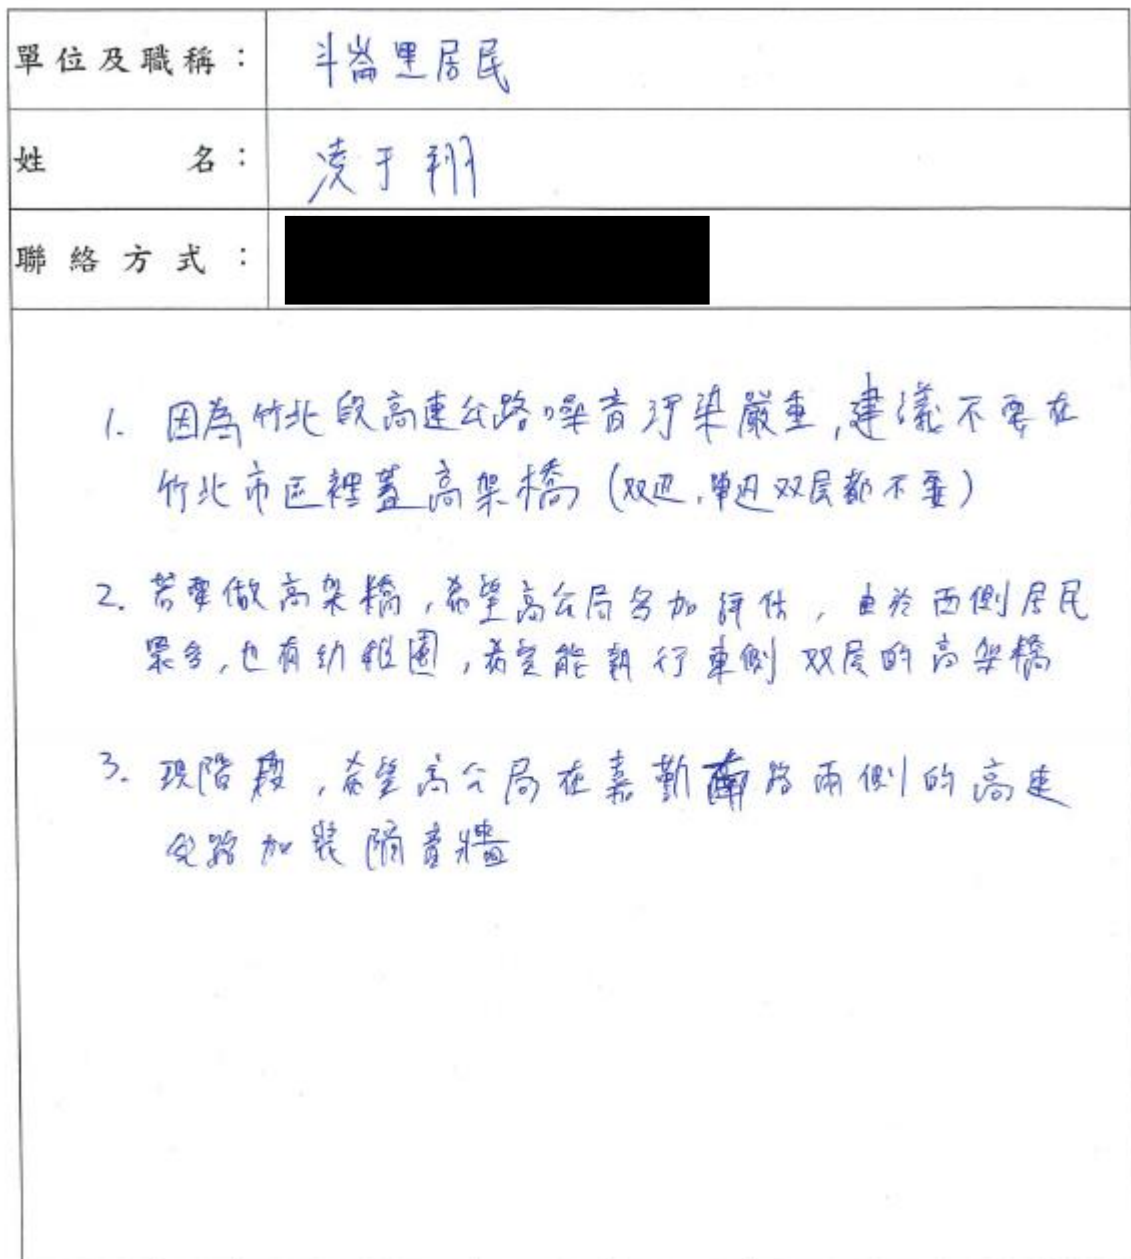 單位及職稱： 斗崙里居民
姓名： 凌于翔
聯絡方式：
1. 因為竹北段高速公路噪音污染嚴重,建議不要在
竹北市區裡蓋高架橋 (双边,單边双层都不要)
2. 若要做高架橋,希望高公局多加評估,由於西側居民
眾多,也有幼稚園,希望能執行東側双层的高架橋
3. 現階段,希望高公局在嘉勤南路兩側的高速
公路加裝隔音牆